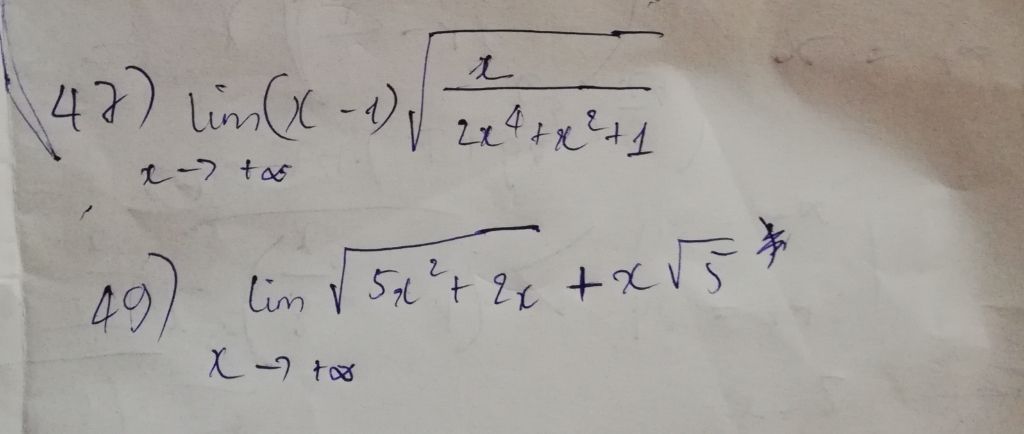 47) lim (x - 1) √(x / (2x⁴ + x² + 1))
x → +∞
49) lim √(5x² + 2x) + x√5
x → +∞